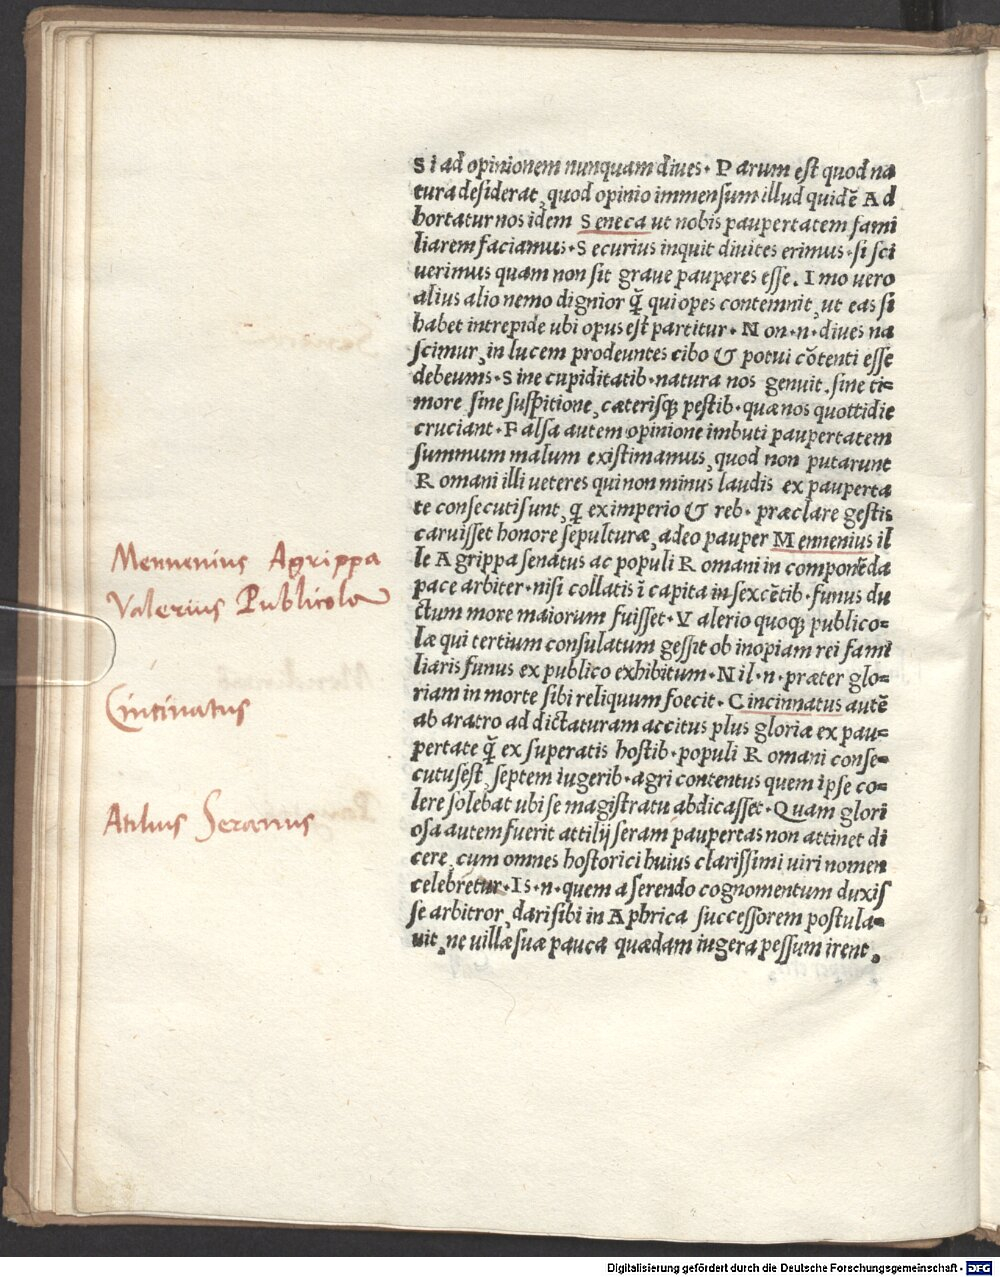 Si ad opinionem nunquam dives. Parum est quod na
tura desiderat, quod opinio immensum illud quidẽ Ad
hortatur nos idem Seneca ut nobis paupertatem fami
liarem faciamus. Securius inquit divites erimus. si sci
verimus quam non sit grave pauperes esse. Imo vero
alius alio nemo dignior q̃ qui opes contemnit, ut eas si
habet intrepide ubi opus est partitur. Non .n. dives na
scimur, in lucem prodeuntes cibo & potui cõtenti esse
debeums. Sine cupiditatib. natura nos genuit. sine ti=
more sine suspitione, cæterisq; pestib. quæ nos quottidie
cruciant. Falsa autem opinione imbuti paupertatem
summum malum existimamus, quod non putarunt
Romani illi ueteres qui non minus laudis ex pauperta
te consecuti sunt, q̃ ex imperio & reb. præclare gestis
caruisset honore sepulturæ, adeo pauper Mennenius il
le Agrippa senatus ac populi Romani in componẽda
pace arbiter. nisi collatis ĩ capita in sexcẽtib. funus du
ctum more maiorum fuisset. Valerio quoq; publico=
læ qui tertium consulatum gessit ob inopiam rei fami
liaris funus ex publico exhibitum. Nil .n. præter glo=
riam in morte sibi reliquum foecit. Cincinnatus autẽ
ab aratro ad dictaturam accitus plus gloriæ ex pau=
pertate q̃ ex superatis hostib. populi Romani conse=
cutus est, septem iugerib. agri contentus quem ipse co=
lere solebat ubi se magistratu abdicasset. Quam glori
osa autem fuerit attilij seram paupertas non attinet di
cere, cum omnes hostorici huius clarissimi uiri nomen
celebretur. Is .n. quem a serendo cognomentum duxis
se arbitror, dari sibi in Aphrica successorem postula=
uit, ne uillæ suæ pauca quædam iugera pessum irent,
Mennenius Agrippa
Valerius Publicola
Cincinatus
Atilius Seranus
Digitalisierung gefördert durch die Deutsche Forschungsgemeinschaft - DFG